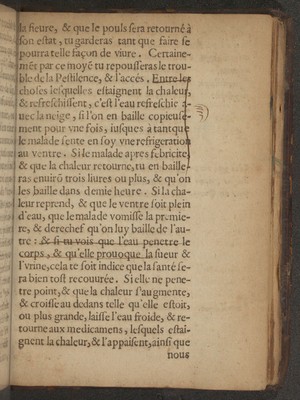 la fieure, & que le pouls sera retourné à
son estat, tu garderas tant que faire se
pourra telle façon de viure. Certaine-
mét par ce moyé tu repousseras le trou-
ble de la Pestilence, & l'accés. Entre les
choses lesquelles estaignent la chaleur,
& refreschissent, c'est l'eau refreschie a-
uec la neige, si l'on en baille copieuse-
ment pour vne fois, iusques à tantque
le malade sente en soy vne refrigeration
au ventre. Si le malade apres febricite,
& que la chaleur retourne, tu en baille-
ras enuirõ trois liures ou plus, & qu'on
les baille dans demie heure. Si la cha-
leur reprend, & que le ventre soit plein
d'eau, que le malade vomisse la premie-
re, & derechef qu'on luy baille de l'au-
tre: & si tu vois que l'eau penetre le
corps, & qu'elle prouoque la sueur &
l'vrine, cela te soit indice que la santé se-
ra bien tost recouurée. Si elle ne pene-
tre point, & que la chaleur s'augmente,
& croisse au dedans telle qu'elle estoit,
ou plus grande, laisse l'eau froide, & re-
tourne aux medicamens, lesquels estai-
gnent la chaleur, & l'appaisent, ainsi que
nous